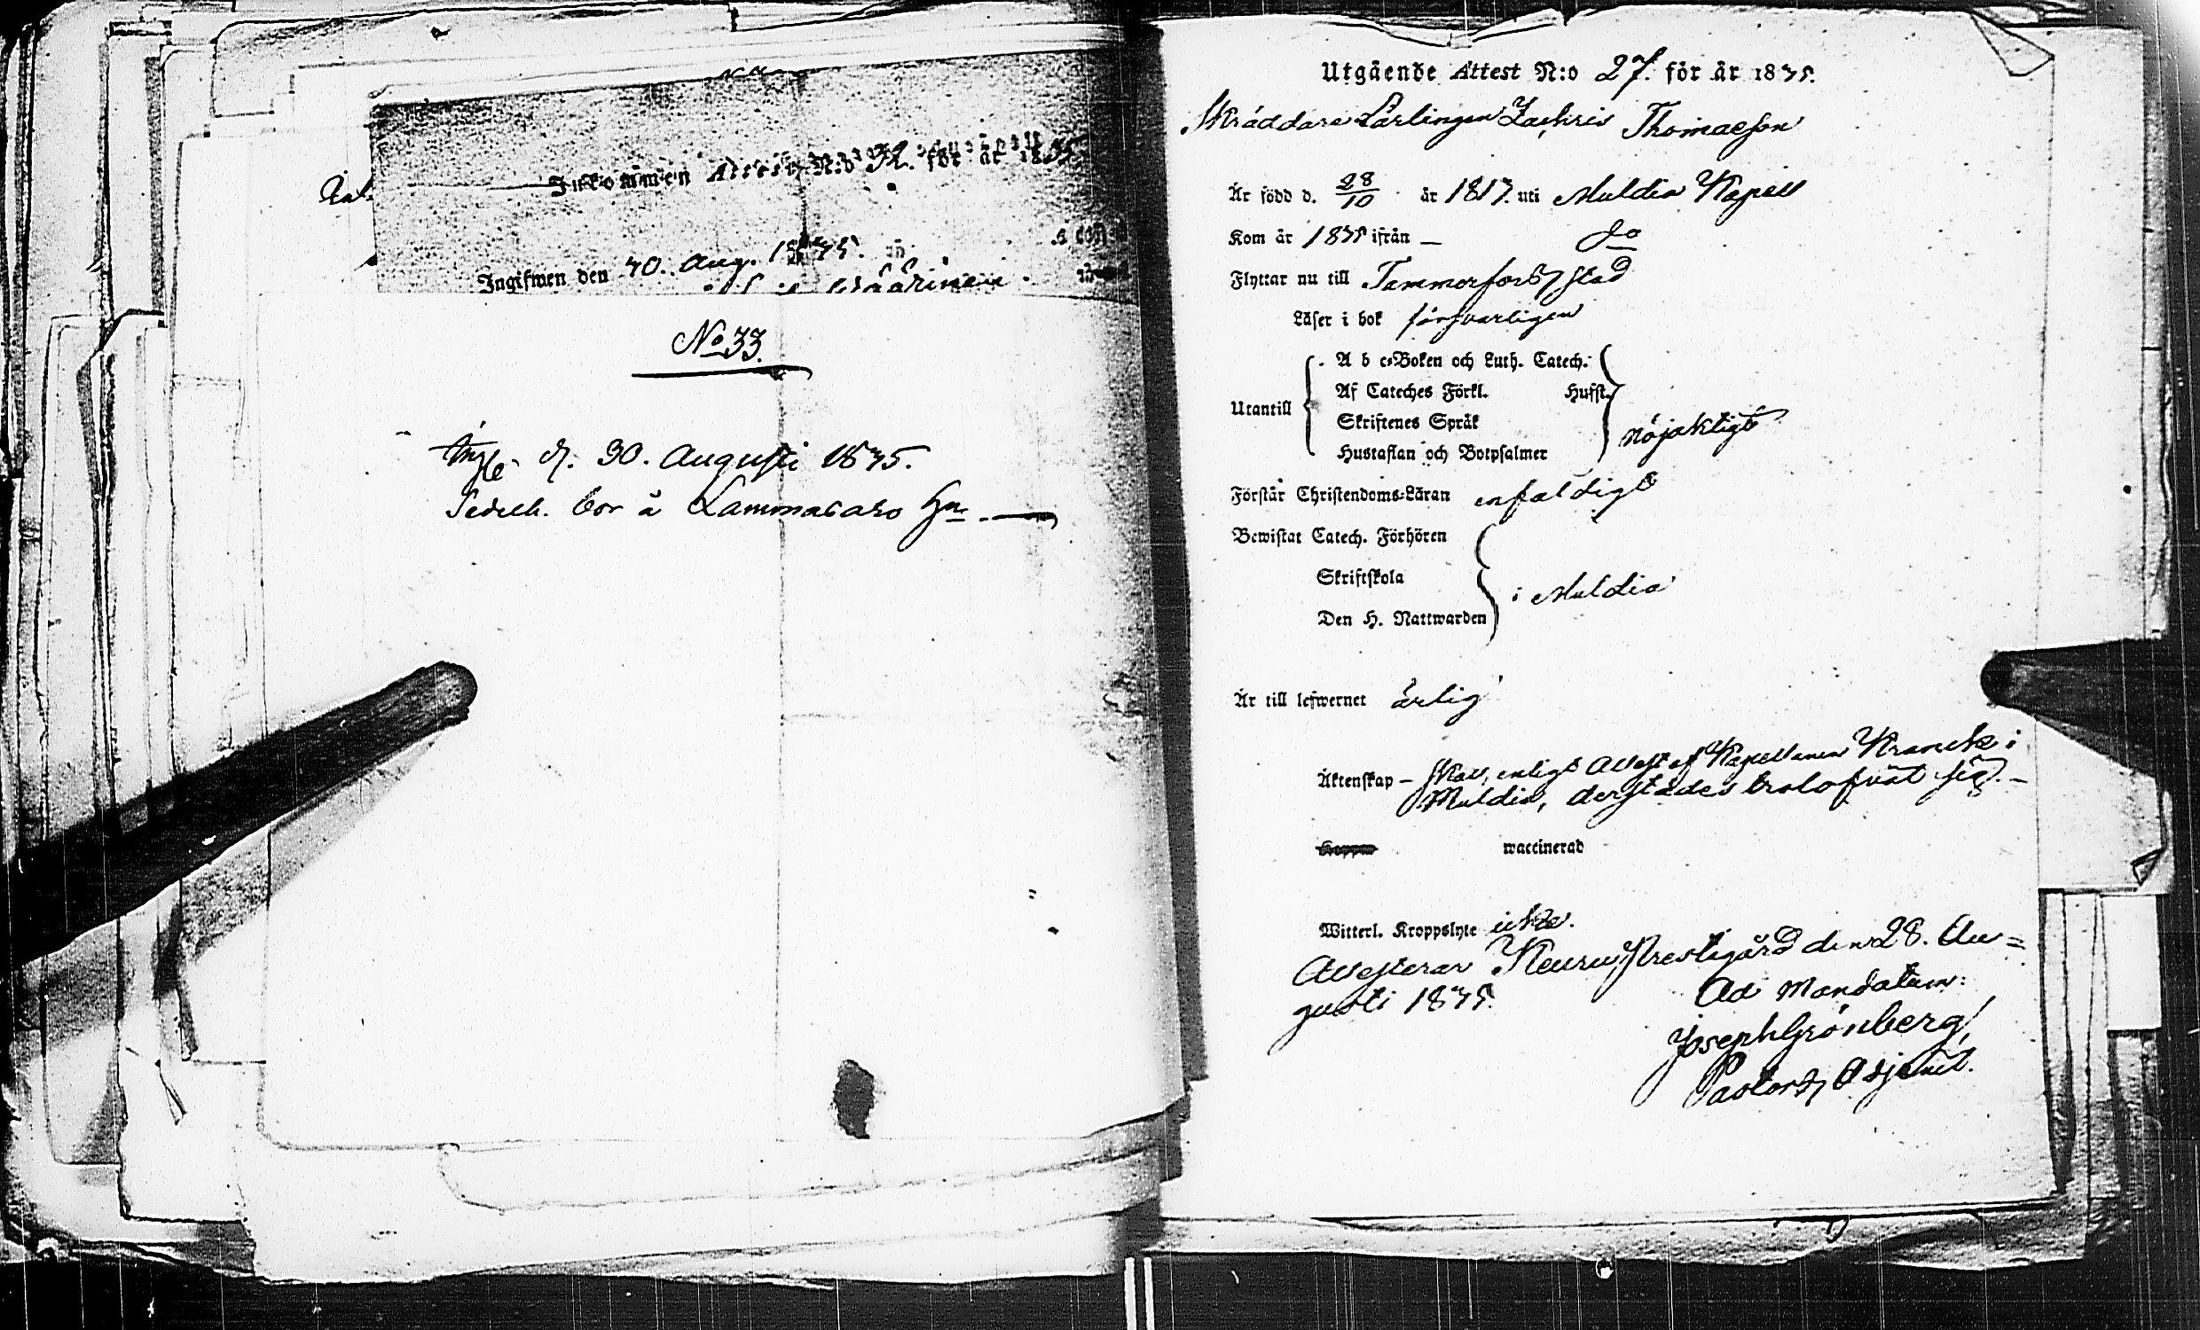 Inkommen Attest N:o 32. för år 1835
Ingifwen den 30. Aug. 1835.
No 33.
Ingl. d. 30. Augusti 1835.
bor å Lammacaro Hn.
Utgående Attest N:o 27. för år 1835.
Skräddare Lärlingen Zachris Thomaeson
Är född d. 28/10 år 1817. uti Muldia Kapell
Kom år 1835 ifrån — do
Flyttar nu till Tammerfors Stad
Läser i bok försvarligen
A b c-Boken och Luth. Catech.
Af Cateches Förkl. Hufst.
Utantill
Skriftenes Språk
nöjaktigt
Hustaflan och Botpsalmer
Förstår Christendoms-Läran enfaldigt
Bewistat Catech. Förhören
Skriftskola
i Muldia
Den H. Nattwarden
Är till lefwernet ärlig
Äktenskap – Skall, enligt Attest af Kapellanen Kranck i
Muldia, derstädes trolofvat sig. –
Koppor waccinerad
Witterl. Kroppslyte icke.
Attesterar Keuru Prestegård den 28. Au=
gusti 1835.
Ad Mandatum:
Joseph Grönberg,
Pastors Adjunct.